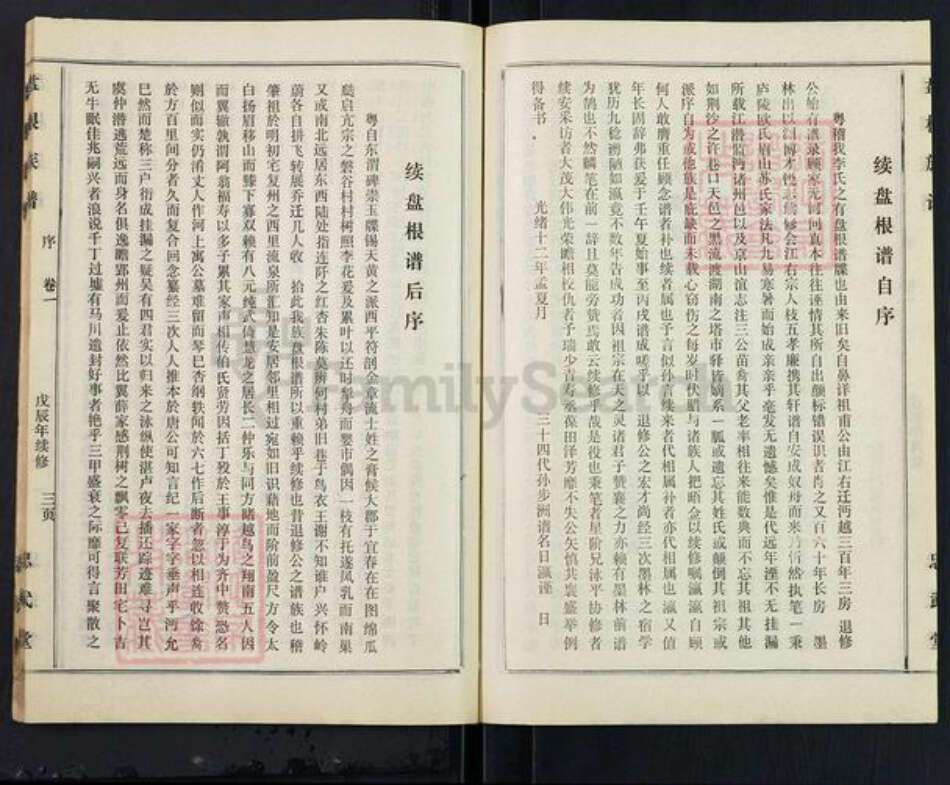 续盘根谱自序
粤稽我李氏之有盘根谱牒也由来旧矣自鼻详祖甫公由江右迁沔越三百年三房 退修
公始有谱录顾家无何问真本往往诬情其所自出颠标错误识者肖之又百六十年长房 墨
林出以闳博才
修会江右宗人枝五孝廉携其轩谱自安成奴
而来乃
然执笔一秉
庐陵欧氏眉山苏氏家法凡九易寒暑而始成亲亲乎毫发无遗憾矣惟是代远年湮不无挂漏
所载江潜监沔诸州邑以及京山谊志注三公苗裔其父老率相往来能数典而不忘其祖其他
如荆沙之许巷口天邑之黑流渡湖南之塔市驿皆嫡系一脈或遗忘其姓氏或颠倒其祖宗或
派序自为或他族是庇缺而未载心窃伤之每岁时伏腊与诸族人把晤佥以续修嘱瀛瀛自顾
何人敢膺重任顾念谱者补也续者属也予言似孙音续来者代相属补者亦代代相属也瀛又值
年长固辞弗获爰于壬午夏始事至丙戌谱成嗟乎以 退修公之宏才尚经三次墨林之宿学
犹历九稔谫陋如瀛竟不数年告成功者因祖宗在天之灵诸君子赞襄之力亦赖有墨林前谱
为鹄也不然麟笔在前一辞且莫能旁赞焉敢云续修乎哉是役也秉笔者星阶兄泳平协修者
续安采访者大茂大伟光荣瞻相校仇者予瑞少青寿丞保田泽芳靡不失公矢慎共襄盛举例
得备书
光绪十二年孟夏月 三十四代孙步洲谱名日瀛谨 日
续盘根谱后序
粤自东渭碑崇玉牒锡天黄之派西平符剖金章流士姓之膏候大郡于宜春在在图绵瓜
瓞启亢宗之磐谷村村树照李花爰及累叶以还时拏舟而娶市偶因一枝有托遂凤乳而南巢
又或南北远居东西陆处指连阡之红杏朱陈莫辨何村弟旧巷于鸟衣王谢不知谁户兴怀岭
蔚各自拼飞转展乔迁几人收 拾此我族盘根谱所以重赖乎续修也昔退修公之谱族也稽
肇祖於明初宅复州之西里流泉所汇知是安居邻里相过宛如旧识藉地而阶前盈尺方令太
白扬眉移山而膝下寡双赖有八元纯式倚慧龙之居长二仲乐与同方睹越鸟之翔南五人因
而翼辙孰谓阿翁福寿以多子累其家声相传伯氏贤劳因括丁役於王事淳于为齐中赘恐名
则似而实仍淆丈人作河上寓公墓难留而琴已杳纲轶闻於六七作后断者忽以相连收馀裔
於方百里间分者久而复合回念纂经三次人人推本於唐公可知言纪一家字字垂声乎沔允
巳然而楚称三户衍成挂漏之疑吴有四君实以归来之泳纵使湛卢夜去播还踪迹难寻岂其
虞仲潜逃荒远而身名俱逸瞻郢州而爰止依然比翼薛家感荆树之飘零已复联芳田宅卜吉
无牛眠佳兆嗣兴者浪说千丁过墟有马川遗封好事者艳乎三甲盛衰之际靡可得言聚散之
序 卷一
戊辰年续修
三页
盘根族谱
忠武堂